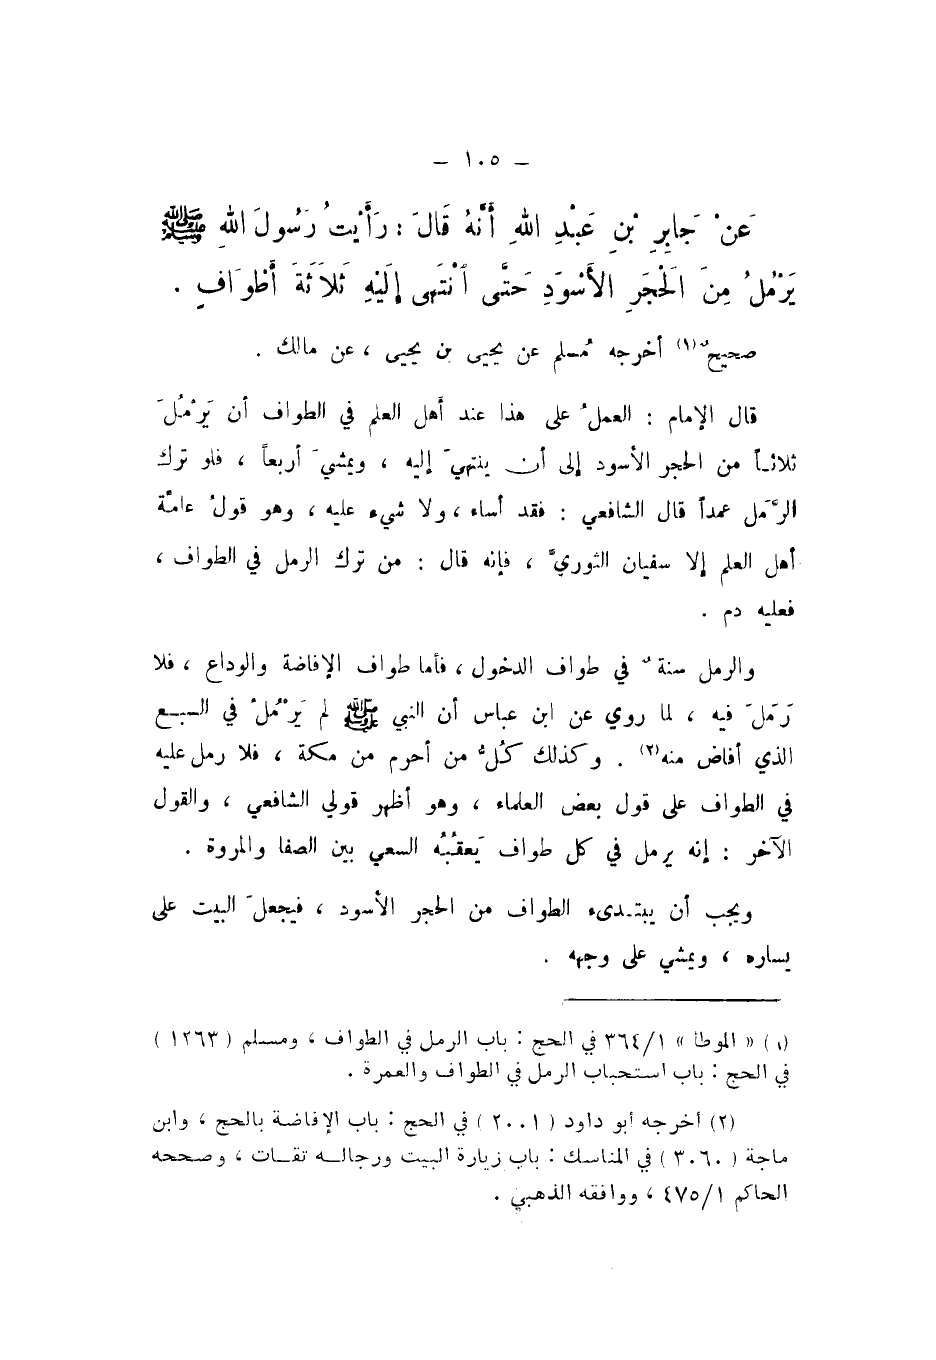 – ١٠٥ –
عَنْ جَابِرِ بْنِ عَبْدِ اللهِ أَنَّهُ قَالَ : رَأَيْتُ رَسُولَ اللهِ ﷺ
يَرْمُلُ مِنَ الْحَجَرِ الأَسْوَدِ حَتَّى انْتَهَى إِلَيْهِ ثَلاَثَةَ أَطْوَافٍ .
صحيحٌ(١) أخرجه مُسلم عن يحيى بن يحيى ، عن مالك .
قال الإمام : العملُ على هذا عند أهل العلم في الطواف أن يَرْمُلَ
ثلاثاً من الحجر الأسود إلى أن ينتهيَ إليه ، ويمشيَ أربعاً ، فلو ترك
الرَّمَل عمداً قال الشافعي : فقد أساء ، ولا شيء عليه ، وهو قولُ عامَّة
أهل العلم إلا سفيان الثوريَّ ، فإنه قال : من ترك الرمل في الطواف ،
فعليه دم .
والرمل سنةٌ في طواف الدخول ، فأما طواف الإفاضة والوداع ، فلا
رَمَلَ فيه ، لما روي عن ابن عباس أن النبي ﷺ لم يَرْمُلْ في السبع
الذي أفاض منه(٢) . وكذلك كُلُّ من أحرم من مكة ، فلا رمل عليه
في الطواف على قول بعض العلماء ، وهو أظهر قولي الشافعي ، والقول
الآخر : إنه يرمل في كل طواف يَعقُبُه السعي بين الصفا والمروة .
ويجب أن يبتدىء الطواف من الحجر الأسود ، فيجعلَ البيت على
يساره ، ويمشي على وجهه .
(١) « الموطأ » ٣٦٤/١ في الحج : باب الرمل في الطواف ، ومسلم ( ١٢٦٣ )
في الحج : باب استحباب الرمل في الطواف والعمرة .
(٢) أخرجه أبو داود ( ٢٠٠١ ) في الحج : باب الإفاضة بالحج ، وابن
ماجة ( ٣٠٦٠ ) في المناسك : باب زيارة البيت ورجاله ثقات ، وصححه
الحاكم ٤٧٥/١ ، ووافقه الذهبي .